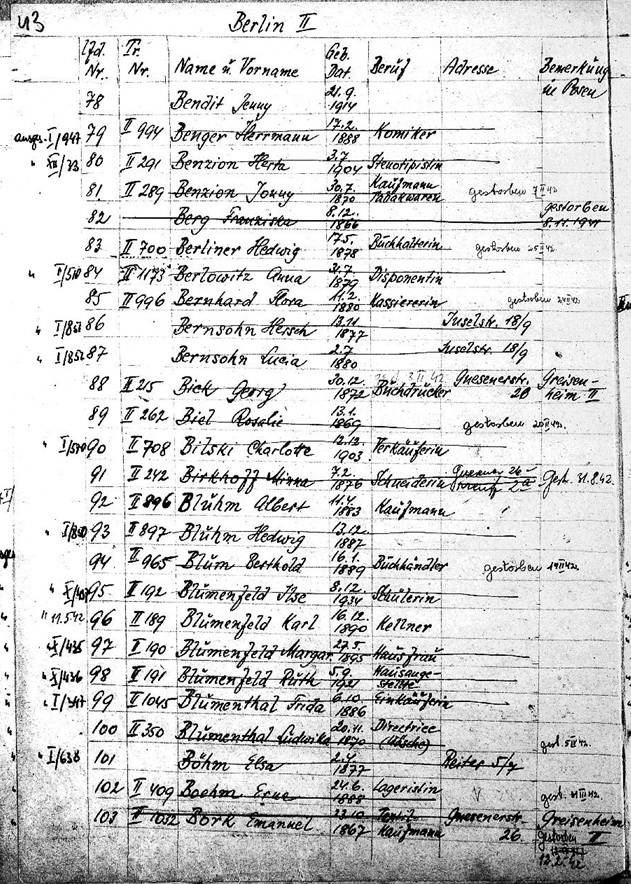 43
Berlin II
lfd. Nr. Tr. Nr. Name u. Vorname Geb. Dat Beruf Adresse Bemerkung
in Posen
78 Bendit Jenny 21.9. 1914
ausges. I/947 79 II 994 Benger Herrmann 17.2. 1888 Komiker
80 II 291 Benzion Herta 3.7. 1904 Stenotipistin
81. II 289 Benzion Jonny 30.7. 1870 Kaufmann gestorben
82 Berg Franziska 8.12. 1866 gestorben 8.11.1941
83 II 700 Berliner Hedwig 17.5. 1878 Buchhalterin gestorben
84 II 1173 Berlowitz Anna 31.7. 1879 Disponentin
85 II 996 Bernhard Flora 11.2. 1880 Kassiererin gestorben
86 Bernsohn Hersch 13.11 1877 Inselstr. 18/9
87 Bernsohn Lucia 2.7. 1880 Inselstr. 18/9
88 II 215 Bick Georg 30.12. 1872 Buchdrucker Gnesenerstr. 26 Greisen-
heim II
89 II 262 Biel Rosalie 13.1. 1869 gestorben
90 II 708 Bilski Charlotte 12.12. 1903 Verkäuferin
91 II 242 Birkhoff Minna 7.2. 1876 Schneiderin Gest. 31.8.42.
92 II 896 Bluhm Albert 11.4. 1883 Kaufmann
93 II 897 Bluhm Hedwig 13.12. 1887
94 II 965 Blum Berthold 16.1. 1889 Buchhändler gestorben
95 II 192 Blumenfeld Ilse 8.12. 1934 Schülerin
11.5.42 96 II 189 Blumenfeld Karl 16.12. 1890 Kellner
X/435 97 II 190 Blumenfeld Margar. 27.5. 1895 Hausfrau
X/436 98 II 191 Blumenfeld Ruth 5.9. 1921 Hausange-
stellte
99 II 1045 Blumenthal Frida 6.10. 1886 Einkäuferin
100 II 350 Blumenthal Ludwika 20.11. 1870 Directrice
(Wäsche) gest.
I/638 101 Böhm Elsa 2.4. 1877 Reiter 5/7
102 II 409 Boehm Erne 24.6. 1888 Lageristin gest.
103 II 1032 Bork Emanuel 23.10 1867 Textil Kaufmann Gnesenerstr. 26. Greisenheim II
gestorben
12.2.42